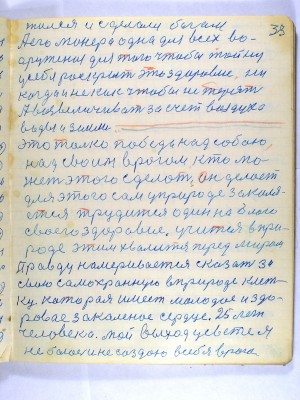 38
жился и сделали богам
А его манера одна для всех во-
оружения для того чтобы тайну
у себя раскрыть это здоровие, ни
когда и не как чтобы не терять
А возвеличиват за счет воздуха
воды и земли.
это толко победы над собою,
над своим врогом, кто мо-
жет этого сделат, он делает
для этого сам у природе закаля-
ется трудится один на благо
своего здоровие, учится в при-
роде этим хвалится перед миром
Правду намеривается сказат за
свою самохранную в природе клет-
ку. каторая имеет молодое и здо-
ровае закаленое сердце. 25 лет
человека. мой выход цевсте я
не болею не создаю в себя врага